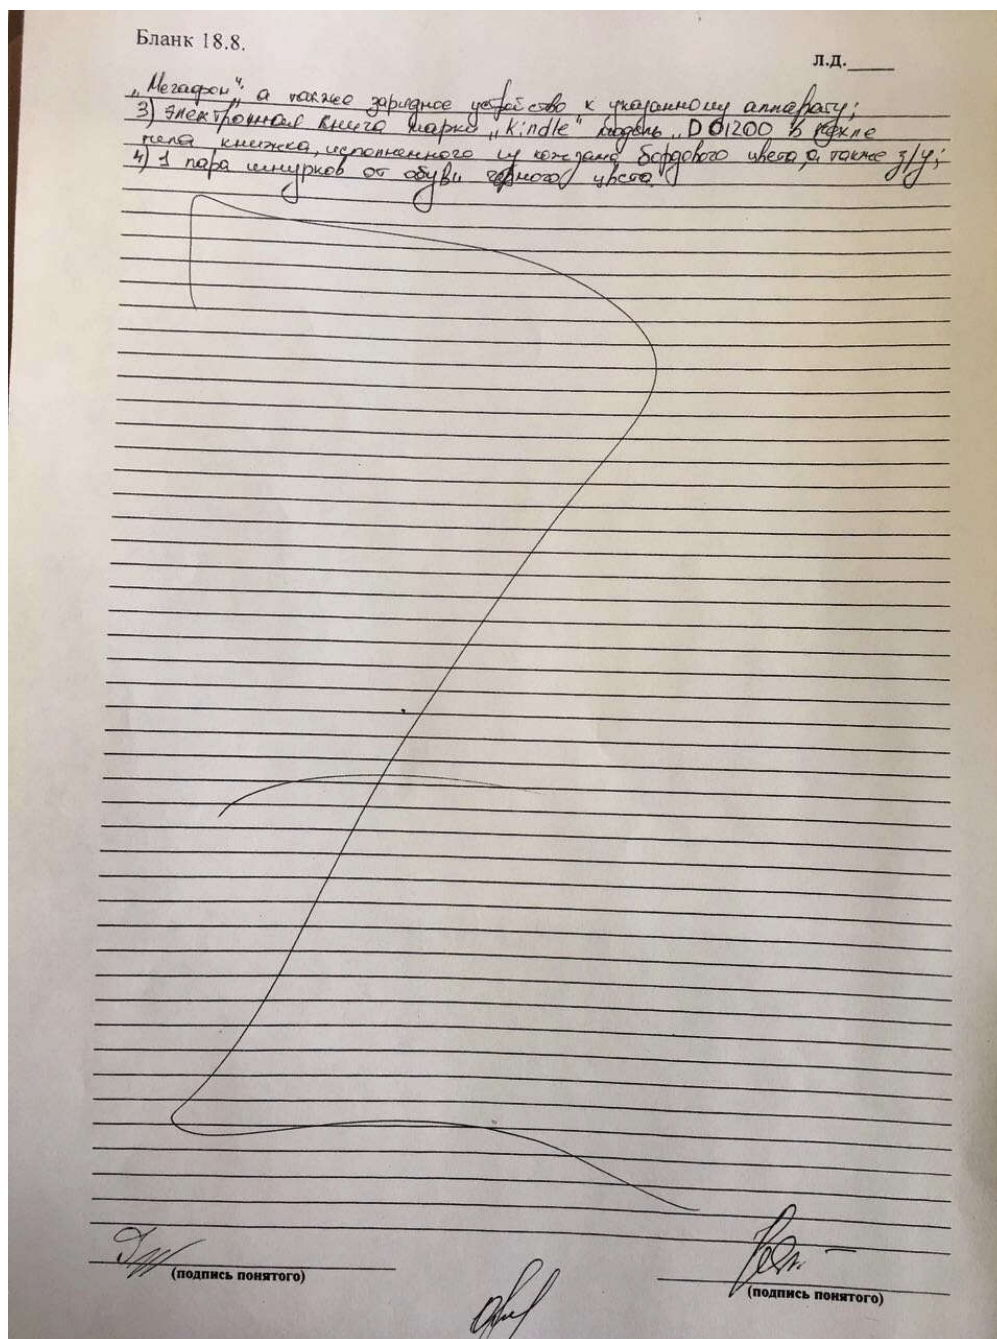 Бланк 18.8.
л.д.
„Мегафон“, а также зарядное устройство к указанному аппарату;
3) электронная книга марки „Kindle“ модель „D01200 в чехле
типа книжка, исполненного из кожзама бордового цвета, а также з/у;
4) 1 пара шнурков от обуви черного цвета.
(подпись понятого)
(подпись понятого)